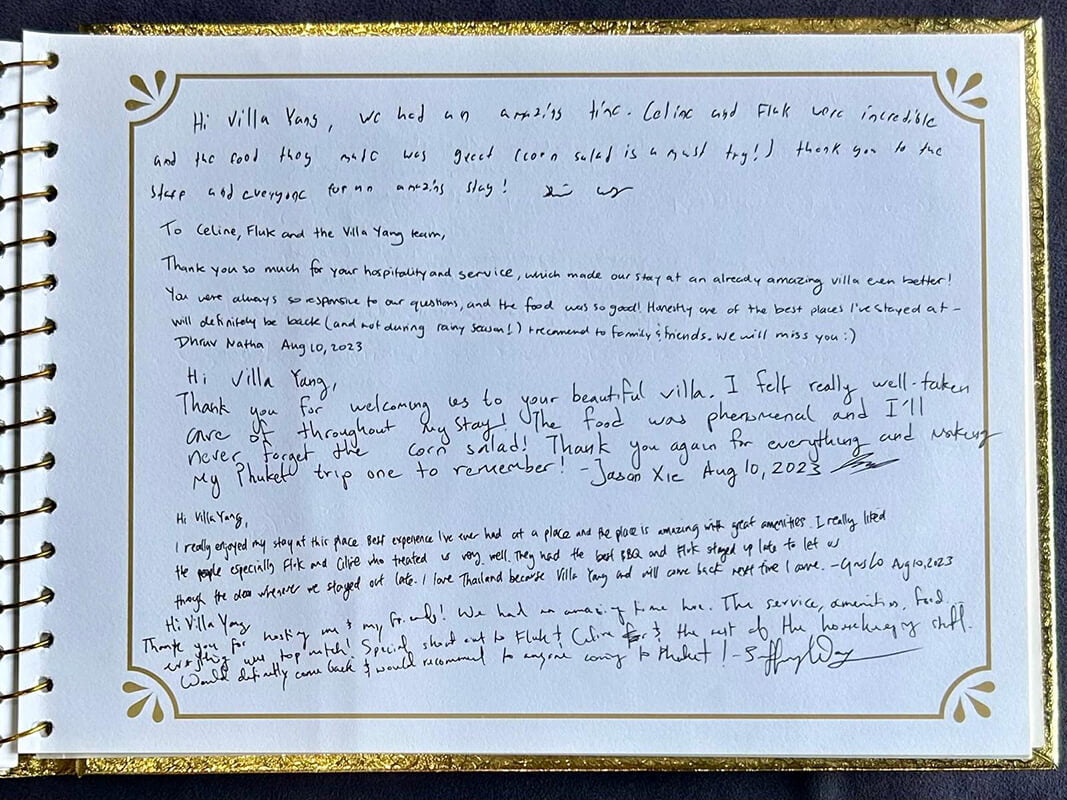 Hi Villa Yang, we had an amazing time. Celine and Fluk were incredible
and the food they made was great (corn salad is a must try!) thank you to the
staff and everyone for an amazing stay!
To Celine, Fluk and the Villa Yang team,
Thank you so much for your hospitality and service, which made our stay at an already amazing villa even better!
You were always so responsive to our questions, and the food was so good! Honestly one of the best places I've stayed at -
will definitely be back (and not during rainy season!) + recomend to family & friends. We will miss you :)
Dhruv Natha Aug 10, 2023
Hi Villa Yang,
Thank you for welcoming us to your beautiful villa. I felt really well-taken
care of throughout my stay! The food was phenomenal and I'll
never forget the corn salad! Thank you again for everything and making
my Phuket trip one to remember! - Jason Xie Aug 10, 2023
Hi Villa Yang,
I really enjoyed my stay at this place. Best experience I've ever had at a place and the place is amazing with great amenities. I really liked
the people especially Fluk and Celine who treated us very well. They had the best BBQ and Fluk stayed up late to let us
through the door whenever we stayed out late. I love Thailand because Villa Yang and will come back next time I come. - Aug 10, 2023
Hi Villa Yang
Thank you for hosting me & my friends! We had an amazing time here. The service, amenities, food -
everything was top notch! Special shout out to Fluk & Celine & the rest of the housekeeping staff.
Would definitely come back & would recommend to anyone coming to Phuket! -